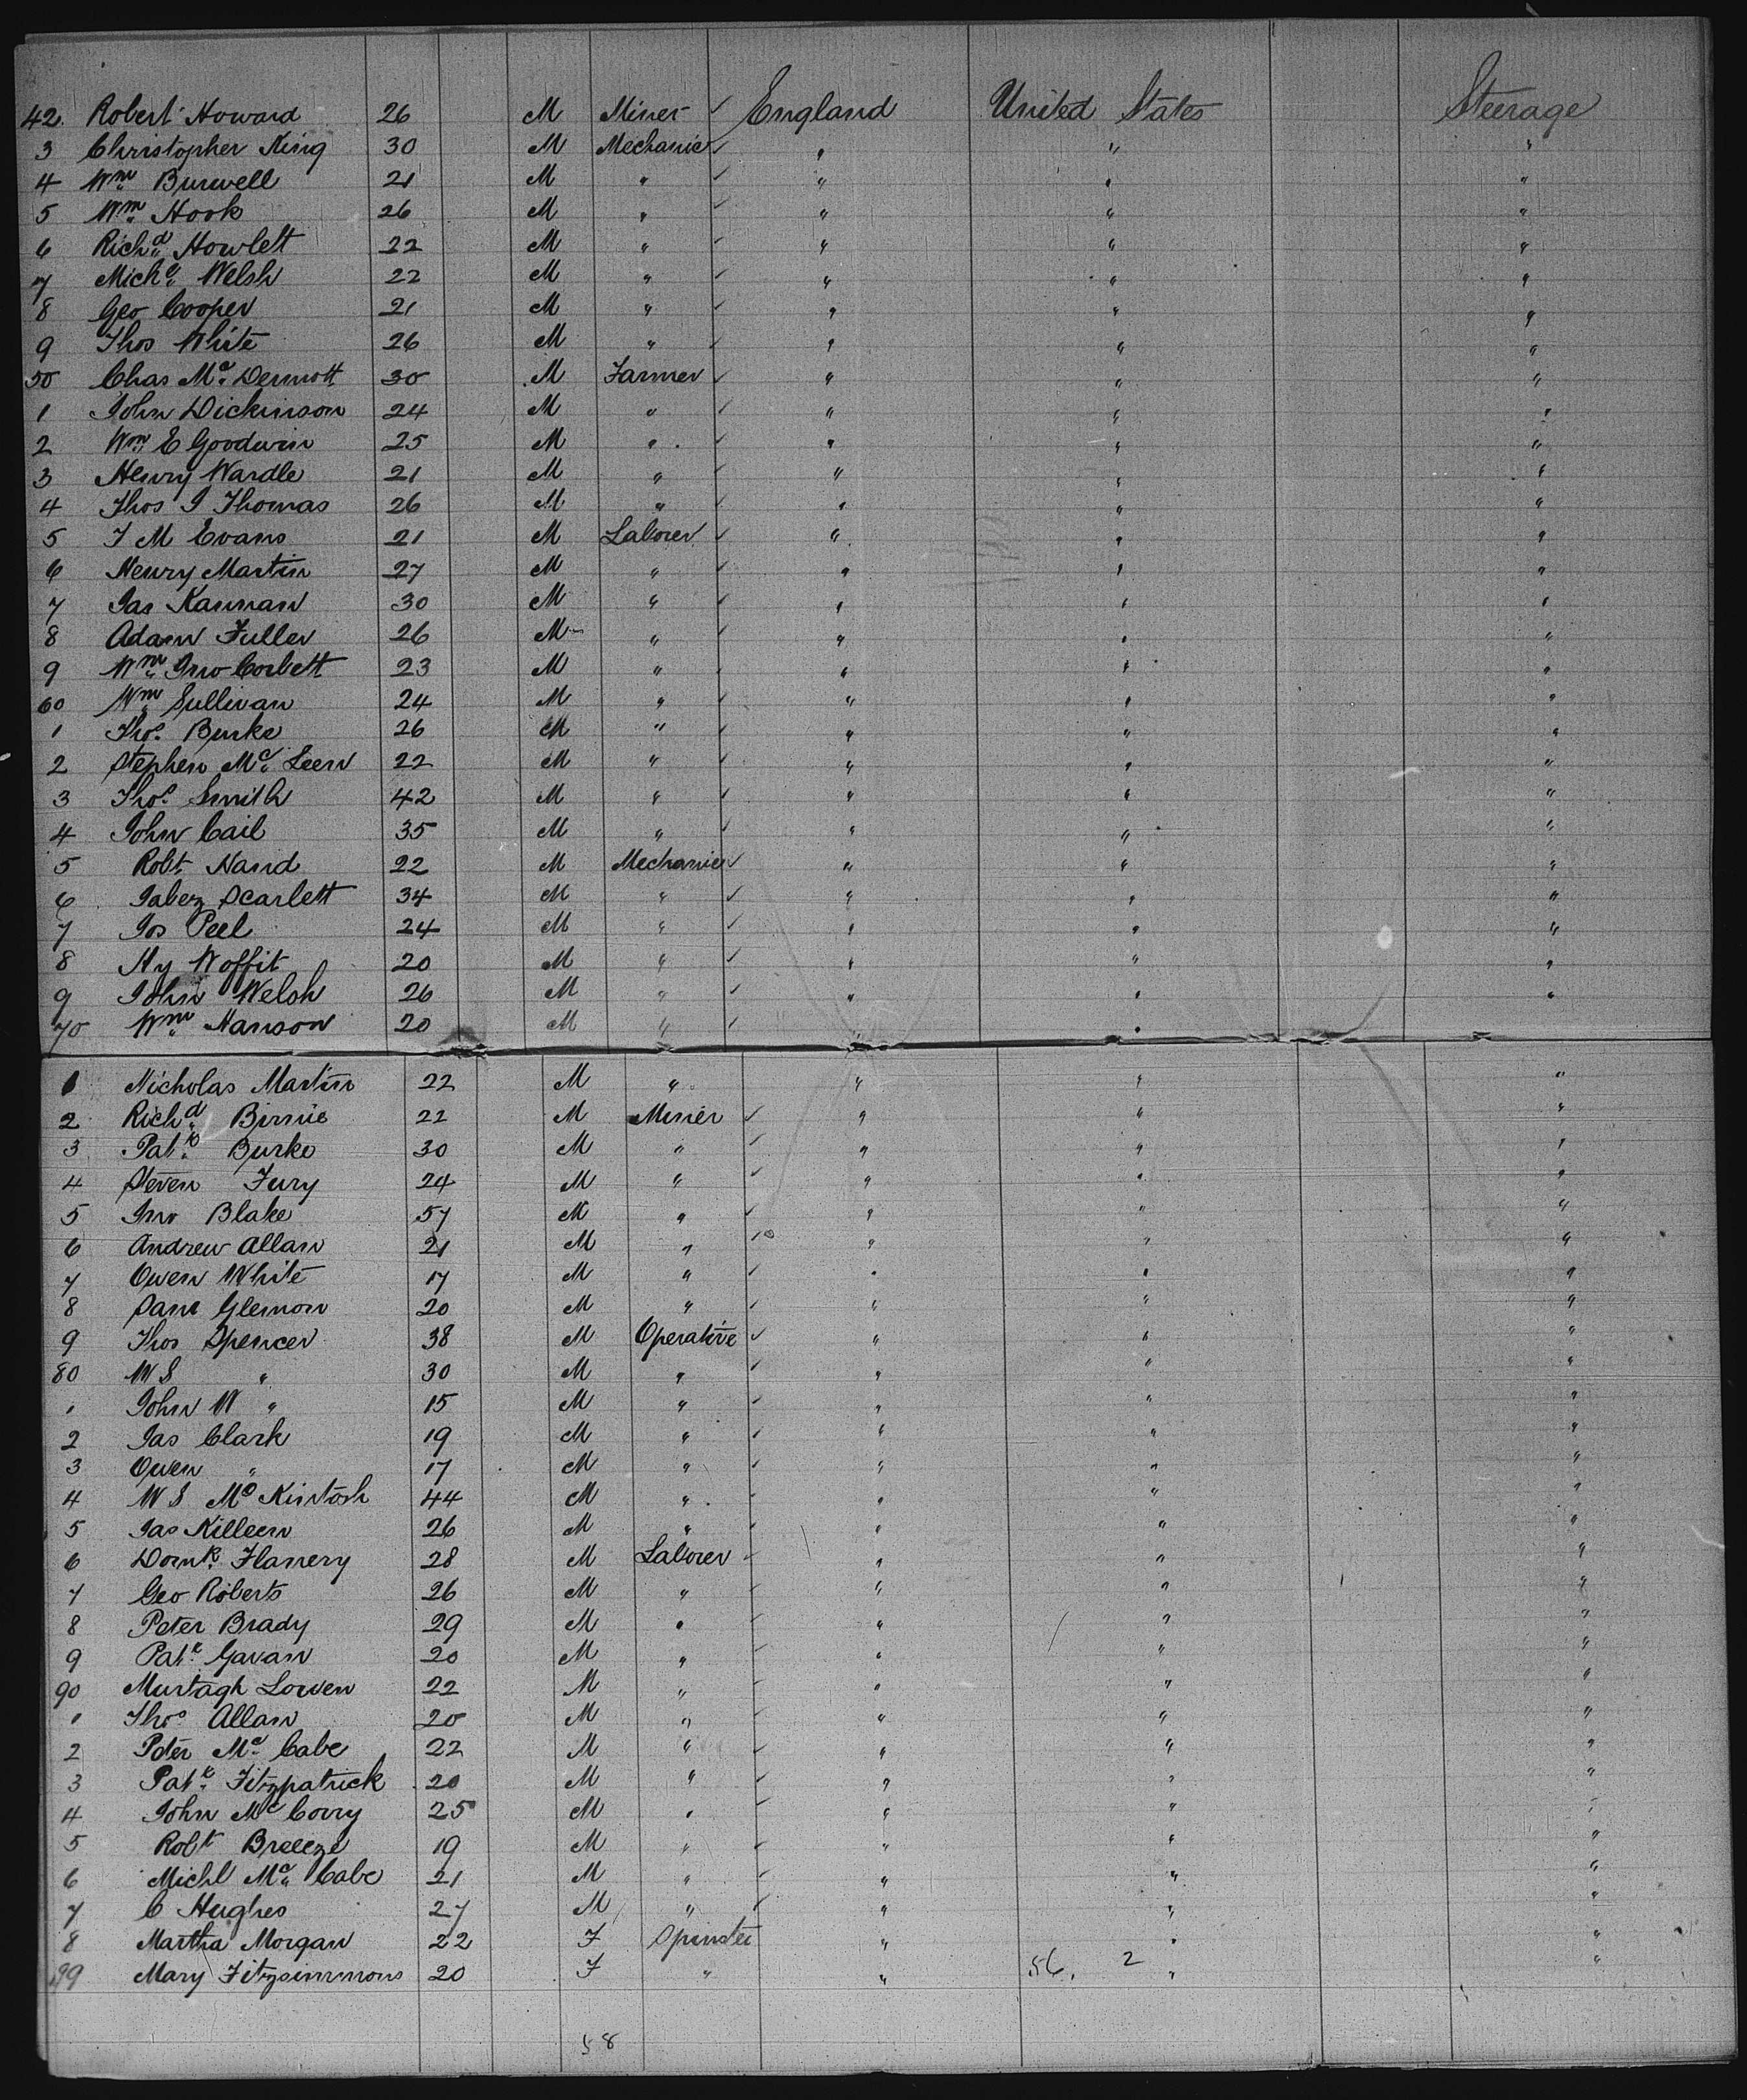 42. Robert Howard 26 M Miner ✓ England United States Steerage
3 Christopher King 30 M Mechanic ✓ " " "
4 Wm Burwell 21 M " ✓ " " "
5 Wm Hook 26 M " ✓ " " "
6 Richd Howlett 22 M " ✓ " " "
7 Michl Welsh 22 M " ✓ " " "
8 Geo Cooper 21 M " ✓ " " "
9 Thos White 26 M " ✓ " " "
50 Chas Mc Dermott 30 M Farmer ✓ " " "
1 John Dickinson 24 M " ✓ " " "
2 Wm E Goodwin 25 M " ✓ " " "
3 Henry Wardle 21 M " ✓ " " "
4 Thos J Thomas 26 M " ✓ " " "
5 J M Evans 21 M Laborer ✓ " " "
6 Henry Martin 27 M " ✓ " " "
7 Jas Kannan 30 M " ✓ " " "
8 Adam Fuller 26 M " ✓ " " "
9 Wm Jno Corbett 23 M " ✓ " " "
60 Wm Sullivan 24 M " ✓ " " "
1 Thos Burke 26 M " ✓ " " "
2 Stephen Mc Leen 22 M " ✓ " " "
3 Thos Smith 42 M " ✓ " " "
4 John Cail 35 M " ✓ " " "
5 Robt Hand 22 M Mechanic ✓ " " "
6 Jabez Scarlett 34 M " ✓ " " "
7 Jos Peel 24 M " ✓ " " "
8 Hy Woffit 20 M " ✓ " " "
9 John Welsh 26 M " ✓ " " "
70 Wm Hanson 20 M " ✓ " " "
1 Nicholas Martin 22 M " " " "
2 Richd Birnie 22 M Miner ✓ " " "
3 Patk Burke 30 M " ✓ " " "
4 Steven Fury 24 M " ✓ " " "
5 Jno Blake 57 M " ✓ " " "
6 Andrew Allan 21 M " ✓ " " "
7 Owen White 17 M " ✓ " " "
8 Saml Glemon 20 M " ✓ " " "
9 Thos Spencer 38 M Operative ✓ " " "
80 W S " 30 M " ✓ " " "
1 John W " 15 M " ✓ " " "
2 Jas Clark 19 M " ✓ " " "
3 Owen " 17 M " ✓ " " "
4 W S Mc Kintosh 44 M " ✓ " " "
5 Jas Killeen 26 M " ✓ " " "
6 Domk Flanery 28 M Laborer ✓ " " "
7 Geo Roberts 26 M " ✓ " " "
8 Peter Brady 29 M " ✓ " " "
9 Patk Gavan 20 M " ✓ " " "
90 Murtagh Lowen 22 M " ✓ " " "
1 Thos Allan 20 M " ✓ " " "
2 Peter Mc Cabe 22 M " ✓ " " "
3 Patk Fitzpatrick 20 M " ✓ " " "
4 John Mc Corry 25 M " ✓ " " "
5 Robt Breeze 19 M " ✓ " " "
6 Michl Mc Cabe 21 M " ✓ " " "
7 C Hughes 27 M " ✓ " " "
8 Martha Morgan 22 F Spinster " " "
99 Mary Fitzsimmons 20 F " " 56. 2 " "
58